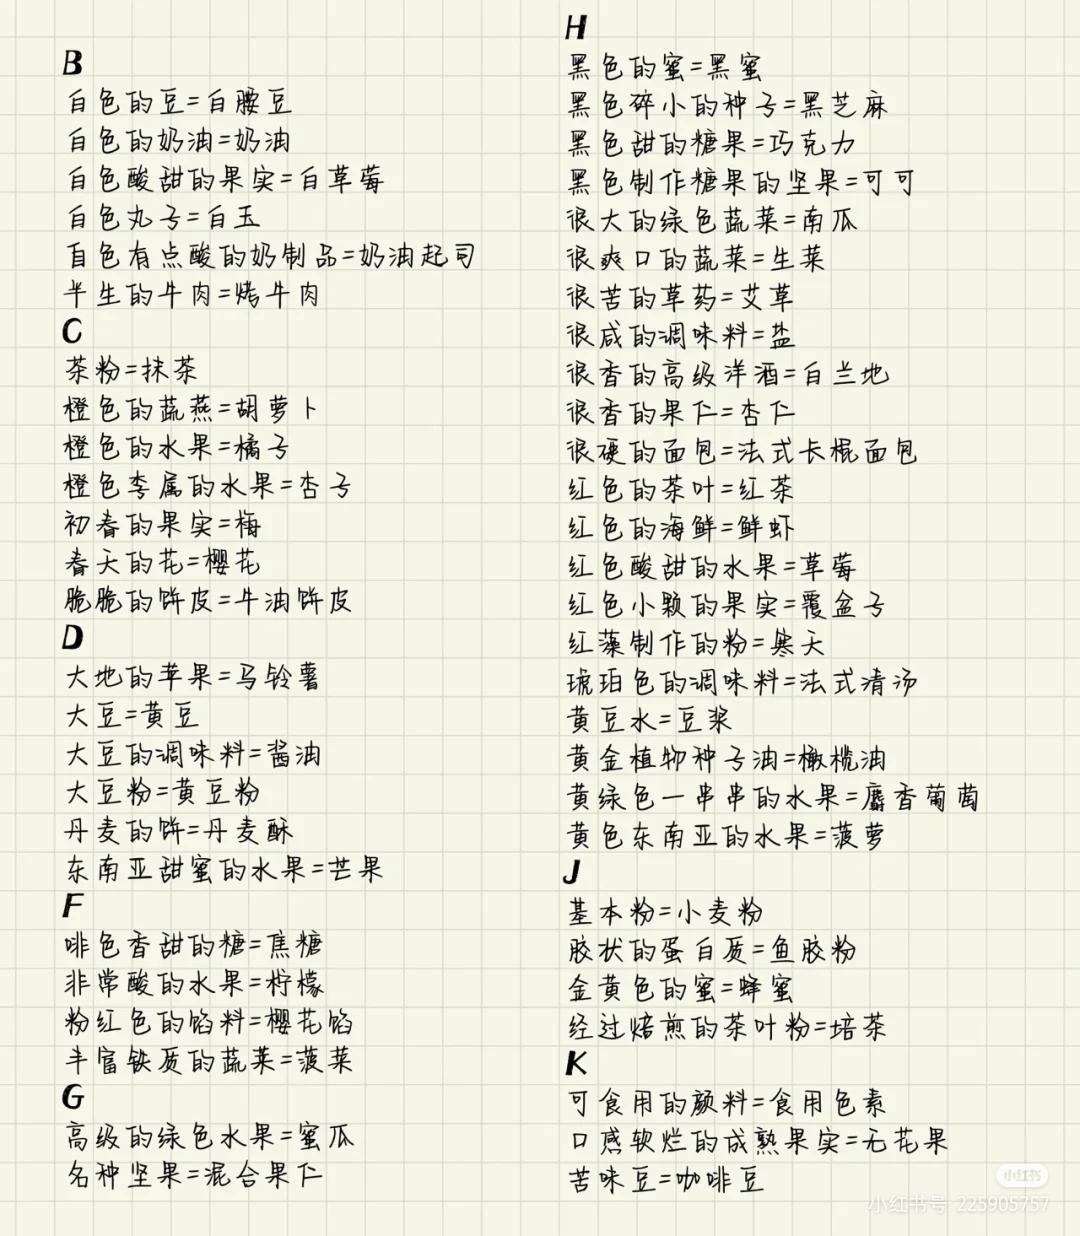 B
白色的豆=白腰豆
白色的奶油=奶油
白色酸甜的果实=白草莓
白色丸子=白玉
白色有点酸的奶制品=奶油起司
半生的牛肉=烤牛肉
C
茶粉=抹茶
橙色的蔬燕=胡萝卜
橙色的水果=橘子
橙色李属的水果=杏子
初春的果实=梅
春天的花=樱花
脆脆的饼皮=牛油饼皮
D
大地的苹果=马铃薯
大豆=黄豆
大豆的调味料=酱油
大豆粉=黄豆粉
丹麦的饼=丹麦酥
东南亚甜蜜的水果=芒果
F
啡色香甜的糖=焦糖
非常酸的水果=柠檬
粉红色的馅料=樱花馅
丰富铁质的蔬菜=菠菜
G
高级的绿色水果=蜜瓜
各种坚果=混合果仁
H
黑色的蜜=黑蜜
黑色碎小的种子=黑芝麻
黑色甜的糖果=巧克力
黑色制作糖果的坚果=可可
很大的绿色蔬菜=南瓜
很爽口的蔬菜=生菜
很苦的草药=艾草
很咸的调味料=盐
很香的高级洋酒=白兰地
很香的果仁=杏仁
很硬的面包=法式长棍面包
红色的茶叶=红茶
红色的海鲜=鲜虾
红色酸甜的水果=草莓
红色小颗的果实=覆盆子
红藻制作的粉=寒天
琥珀色的调味料=法式清汤
黄豆水=豆浆
黄金植物种子油=橄榄油
黄绿色一串串的水果=麝香葡萄
黄色东南亚的水果=菠萝
J
基本粉=小麦粉
胶状的蛋白质=鱼胶粉
金黄色的蜜=蜂蜜
经过焙煎的茶叶粉=培茶
K
可食用的颜料=食用色素
口感软烂的成熟果实=无花果
苦味豆=咖啡豆
小红书
小红书号 225905757